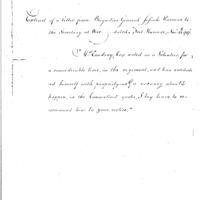 Extract of a letter from Brigadier General Josiah Harmar to
the Secretary at War dated Fort Harmar, Nov
"Mr. Lindsay has acted as a Volunteer for
a considerable time, in the regiment, and has conducted
himself with propriety, if a vacancy should
happen, in the Connecticut quota, I beg leave to re-
commend him to your notice."